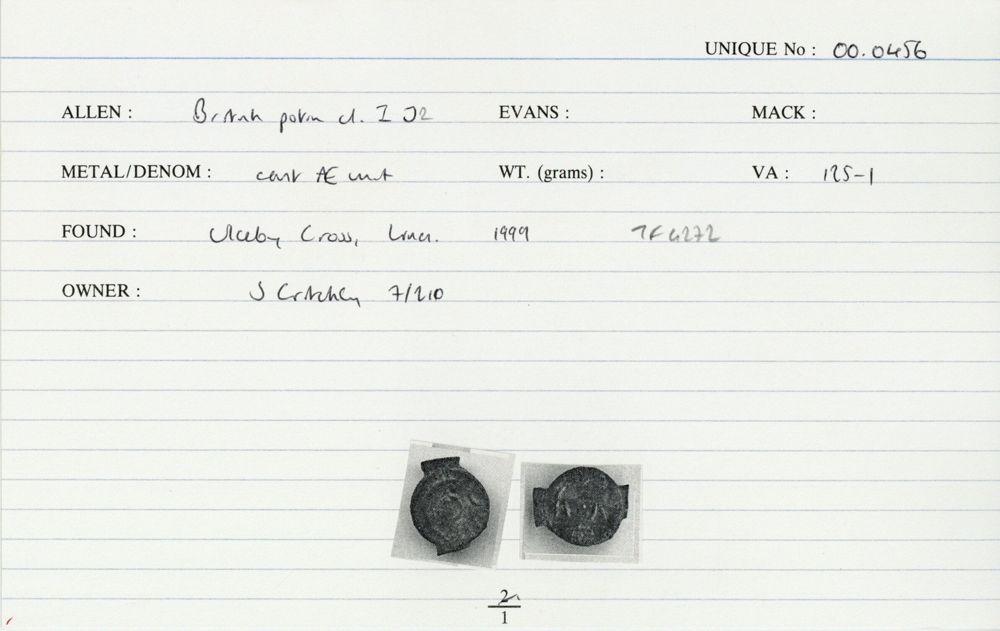 UNIQUE No : 00.0456
ALLEN : British potin cl. I J2 EVANS : MACK :
METAL/DENOM : cast Æ unit WT. (grams) : VA : 125-1
FOUND : Ulceby Cross, Lincs. 1999 TF 4272
OWNER : J Critchley 7/210
2
1